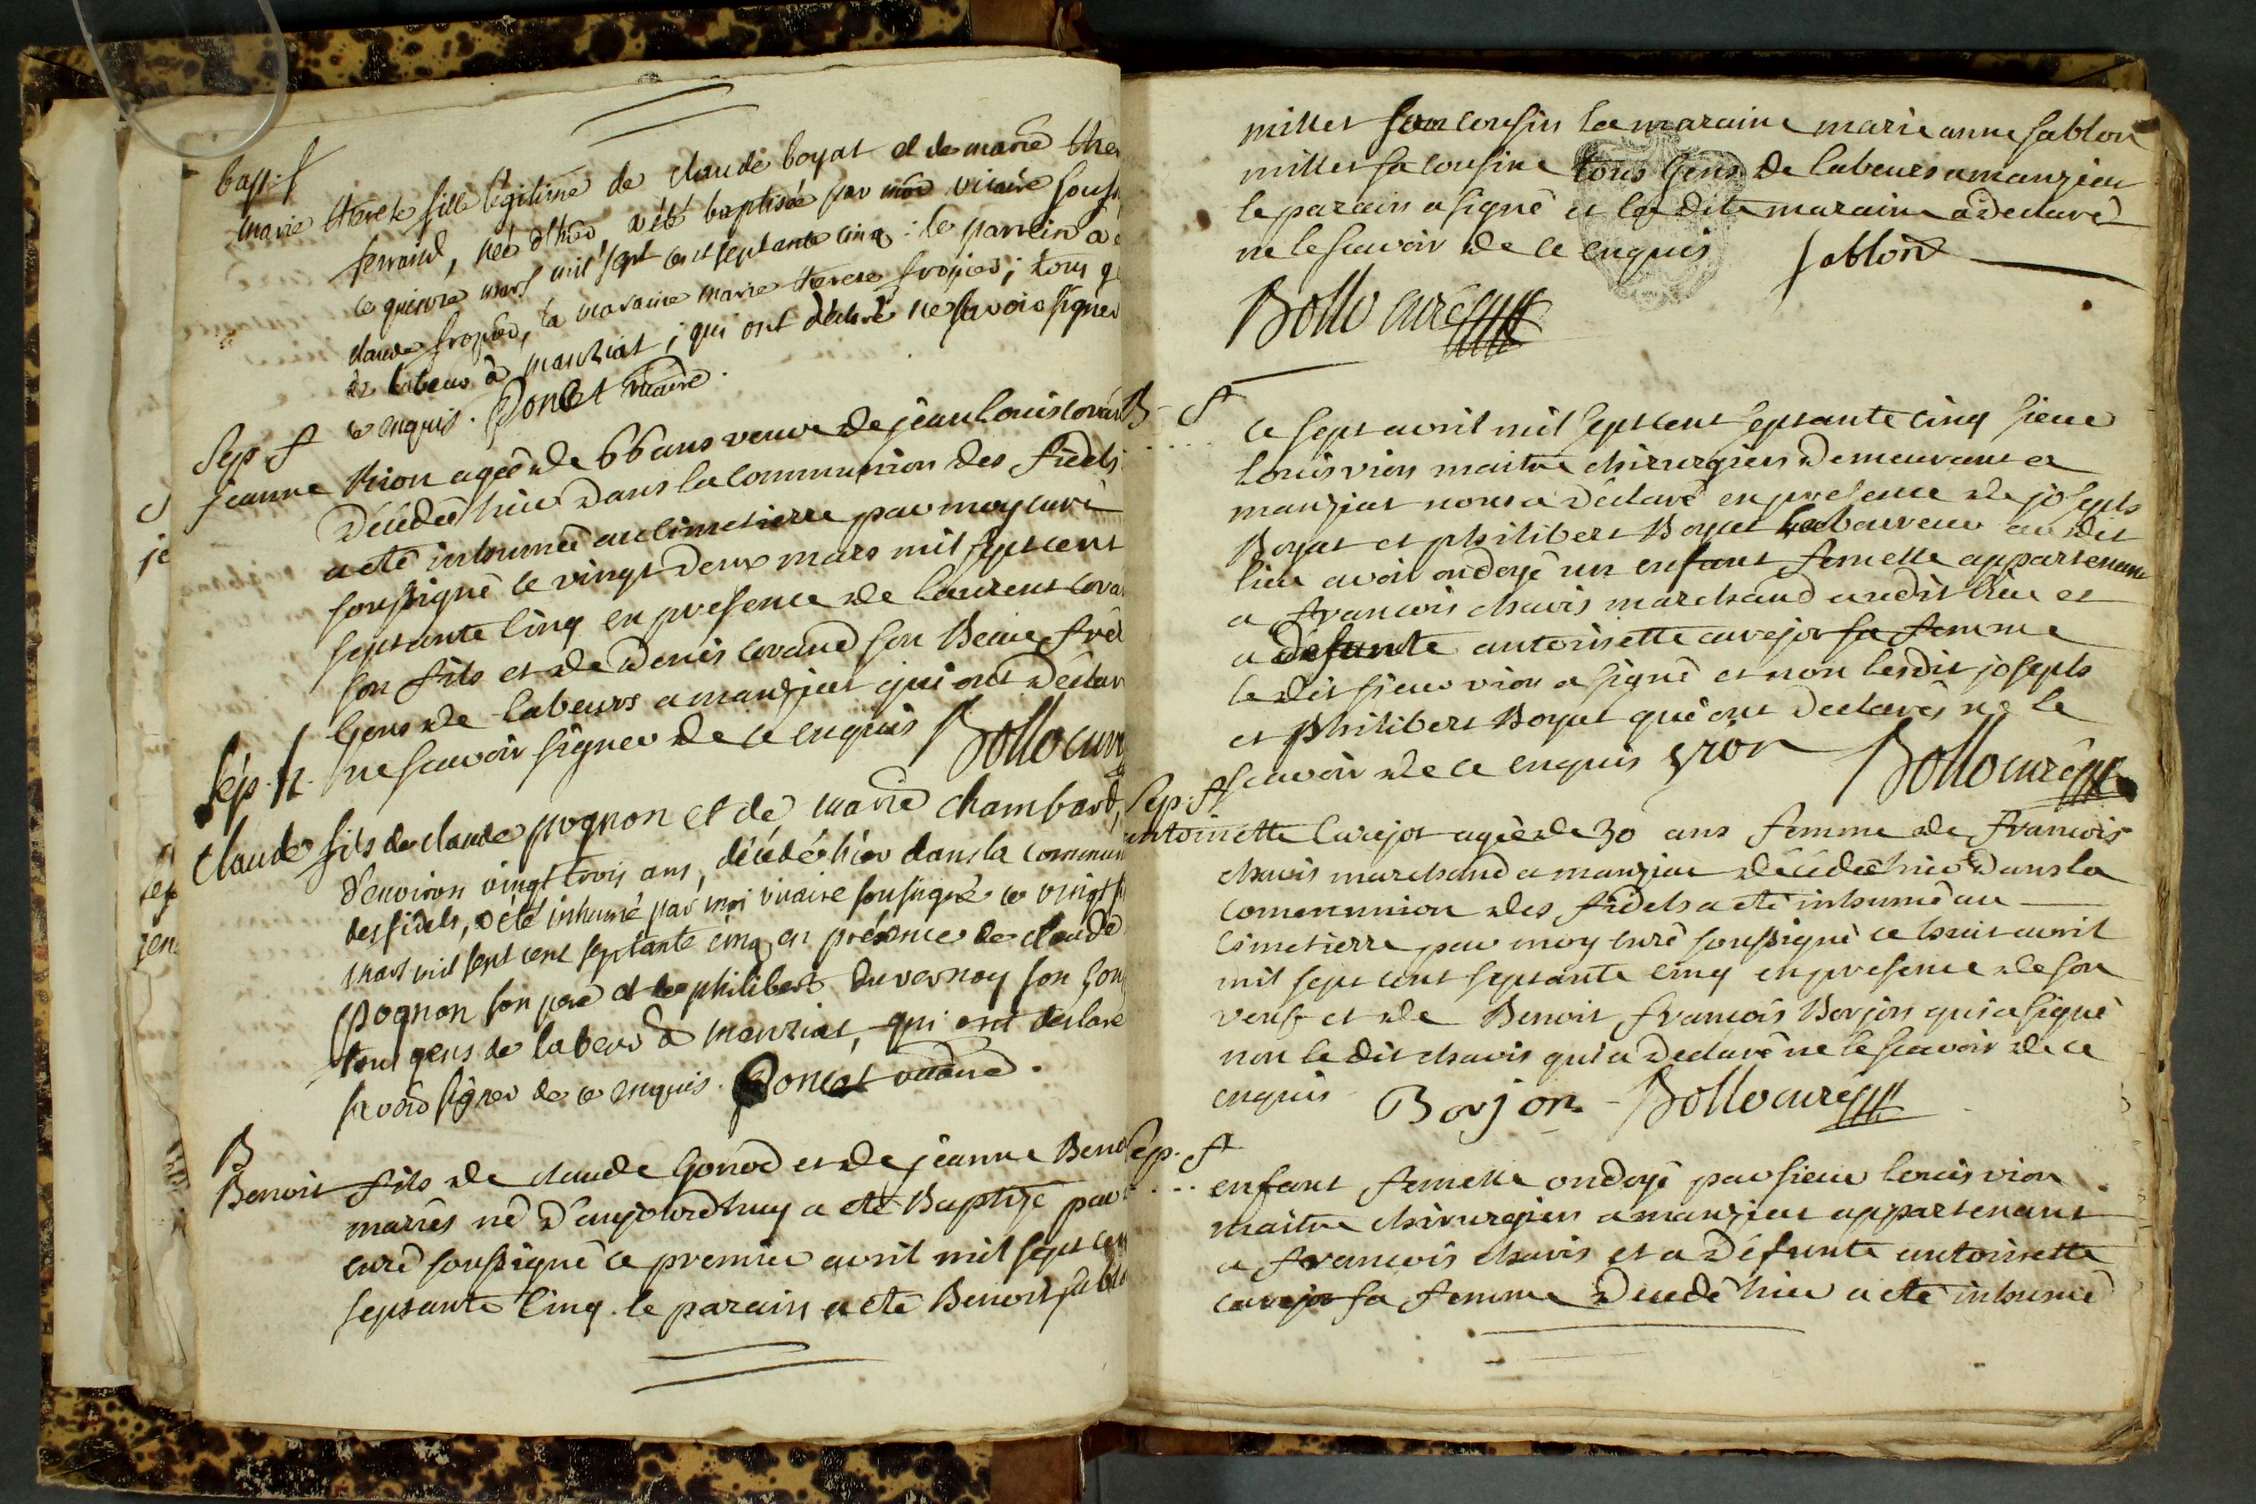 bapt. f
marie therese fille légitime de claude boyat et de marie the
ferrand, née d'hier a été baptisée par moi vicaire souss
ce quinze mars mil sept cent septante cinq : le parrein a é
claude fropier, la maraine marie therese fropier ; tous ge
de labeur à manziat ; qui ont déclaré ne savoir signer
ce enquis. Poncet vicaire.
Sep f
jeanne Vion agée de 66 ans veuve de jean louis corand
décédée hier dans la communion des fidels
a eté inhumée au cimetierre par moy curé
soussigné ce vingt deux mars mil sept cent
septante cinq en presence de laurent cora
son fils et de denis corand son Beau frèr
gens de labeurs a manziat qui ont déclar
ne scavoir signer de ce enquis Bollo curé
Sép. h.
Claude fils de claude pognon et de marie chambard,
d'environ vingt trois ans, décédé hier dans la commun
des fidels, a été inhumé par moi vicaire soussigné ce vingt
mars mil sept cent septante cinq en présence de claude
pognon son pere et de philibert duvernay son
tous gens de labeur à manziat, qui ont déclaré
savoir signer de ce enquis. Poncet vicaire.
B
Benoit fils de claude gonod et de jeanne Beno
mariés né d'aujourdhuy a eté Baptizé par
curé soussigné ce premier avril mil sept cen
septante cinq. le parain a eté Benoit sablo
millet son cousin la maraine marie anne sablon
millet sa cousine tous gens de labeurs a manziat
le parain a signé et la dite maraine a déclaré
ne le scavoir de ce enquis sablon
Bollo curé
B f
ce sept avril mil sept cent septante cinq sieur
louis vion maitre chirurgien demeurant a
manziat nous a déclaré en presence de joseph
Boyat et philibert Boyat laboureur au dit
lieu avoir ondoyé un enfant femelle appartenant
a francois chavis marchand au dit lieu et
a defunte antoinette curejot sa femme
le dit sieur vion a signé et non lesdit joseph
et philibert Boyat qui ont declarés ne le
scavoir de ce enquis vion Bollo curé
Sep. f
antoinette curejot agée de 30 ans femme de francois
chavis marchand a manziat décédée hier dans la
communion des fidels a eté inhumé au
cimetierre par moy curé soussigné ce huit avril
mil sept cent septante cinq en presence de son
veuf et de Benoit francois Borjon qui a signé
non le dit chavis qui a declaré ne le scavoir de ce
enquis Borjon Bollo curé
Sep. f
enfant femelle ondoyé par sieur louis vion
maitre chirurgien a manziat appartenant
a francois chavis et a défunte antoinette
curejot sa femme decedé hier a eté inhumé